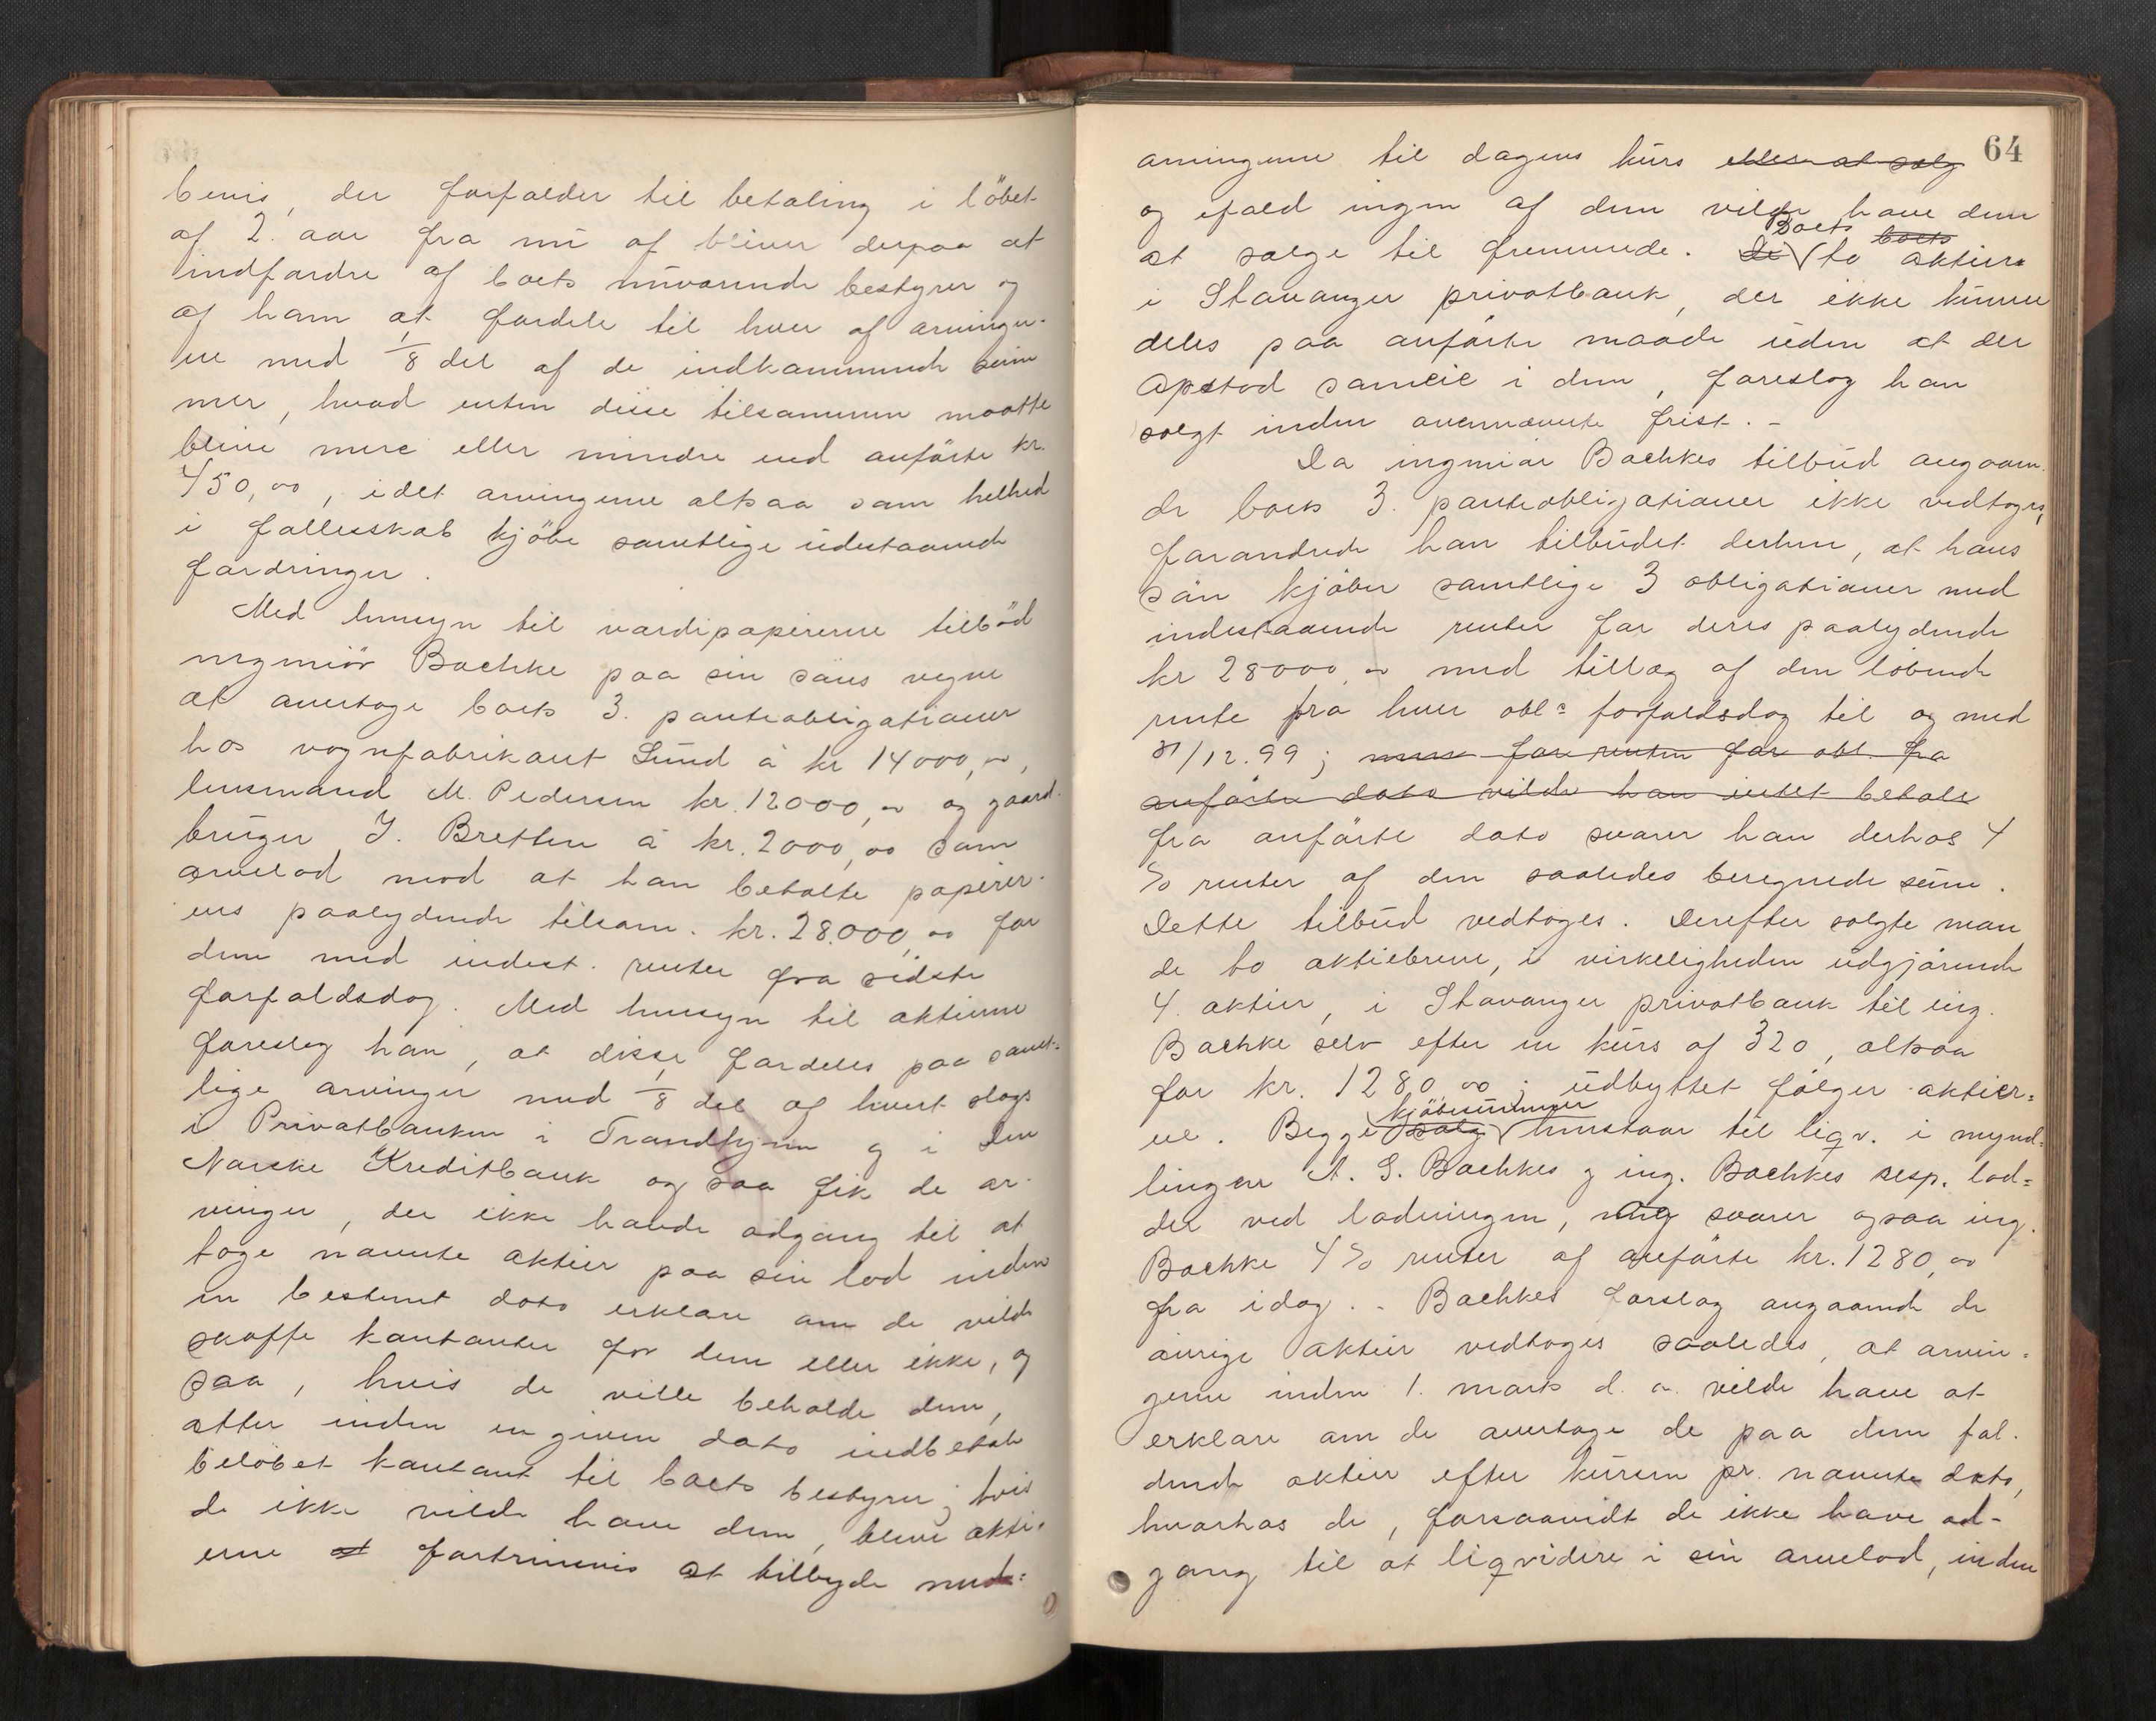 bevis, der forfalder til betaling i löbet
af 2. aar fra nu af bliver derpaa at
indfordre af boets nuværende bestyrer og
af ham at fordele til hver af arvinger-
ne med 1/8 del af de indkommende sum
mer, hvad enten disse tilsammen maatte
blive mere eller mindre end anförte kr.
450,00, idet arvingerne altsaa som helhed
i fællesskab kjöbe samtlige udestaaende
fordringer.
Med hensyn til værdipapirerne tilböd
ingeniör Bachke paa sin söns vegne
at overtage boets 3. panteobligationer
hos vognfabrikant Lund á kr 14000,00,
lensmand M. Pedersen kr. 12000,00 og gaard-
bruger J. Bretten á kr. 2000,00 som
arvelod mod at han betalte papirer-
nes paalydende tilsam. kr. 28.000,00 for
dem med indest. renter fra sidste
forfaldsdag. Med hensyn til aktierne
foreslog han, at disse fordeles paa samt-
lige arvinger med 1/8 del af hvert slags
i Privatbanken i Trondhjem og i Den
Norske Kreditbank og saa fik de ar-
vinger, der ikke havde adgang til at
tage nævnte aktier paa sin lod inden
en bestemt dato erklære om de vilde
skaffe kontanter for dem eller ikke, og
saa, hvis de ville beholde dem,
atter inden en given dato indbetale
belöbet kontant til boets bestyrer; hvis
de ikke vilde have dem, bleve akti-
erne at fortrinsvis at tilbyde med=
64
arvingerne til dagens kurs eller at sælg
og ifald ingen af dem vilde have dem
at sælge til fremmede. De Boets to boets aktier
i Stavanger privatbank, der ikke kunne
deles paa anförte maade uden at der
opstod sameie i dem, foreslog han
solgt inden ovennævnte frist. -
Da ingeniör Bachkes tilbud angaaen-
de boets 3. panteobligationer ikke vedtoges,
forandrede han tilbudet derhen, at hans
sön kjöber samtlige 3 obligationer med
indestaaende renter for deres paalydende
kr 28000,00 med tillæg af den löbende
rente fra hver obls forfaldsdag til og med
31/12.99; men for renten for obl. fra
anförte dato vilde han intet betale
fra anförte dato svarer han derhos 4
% renter af den saaledes beregnede sum.
Dette tilbud vedtoges. Derefter solgte man
de to aktiebreve, i virkeligheden udgjörende
4. aktier, i Stavanger privatbank til ing.
Bachke selv efter en kurs af 320, altsaa
for kr. 1280,00; udbyttet fölger aktier=
ne. Begge salg kjöbesummer henstaar til liqv. i mynd=
lingen A. S. Bachkes og ing. Bachkes resp. lod=
der ved lodningen, og svarer ogsaa ing.
Bachke 4% renter af anförte kr. 1280,00
fra idag. - Bachkes forslag angaaende de
övrige aktier vedtoges saaledes, at arvin=
gerne inden 1. marts d. a. vilde have at
erklære om de overtage de paa dem fal-
dende aktier efter kursen pr. nævnte dato,
hvorhos de, forsaavidt de ikke have ad-
gang til at liqvidere i sin arvelod, inden